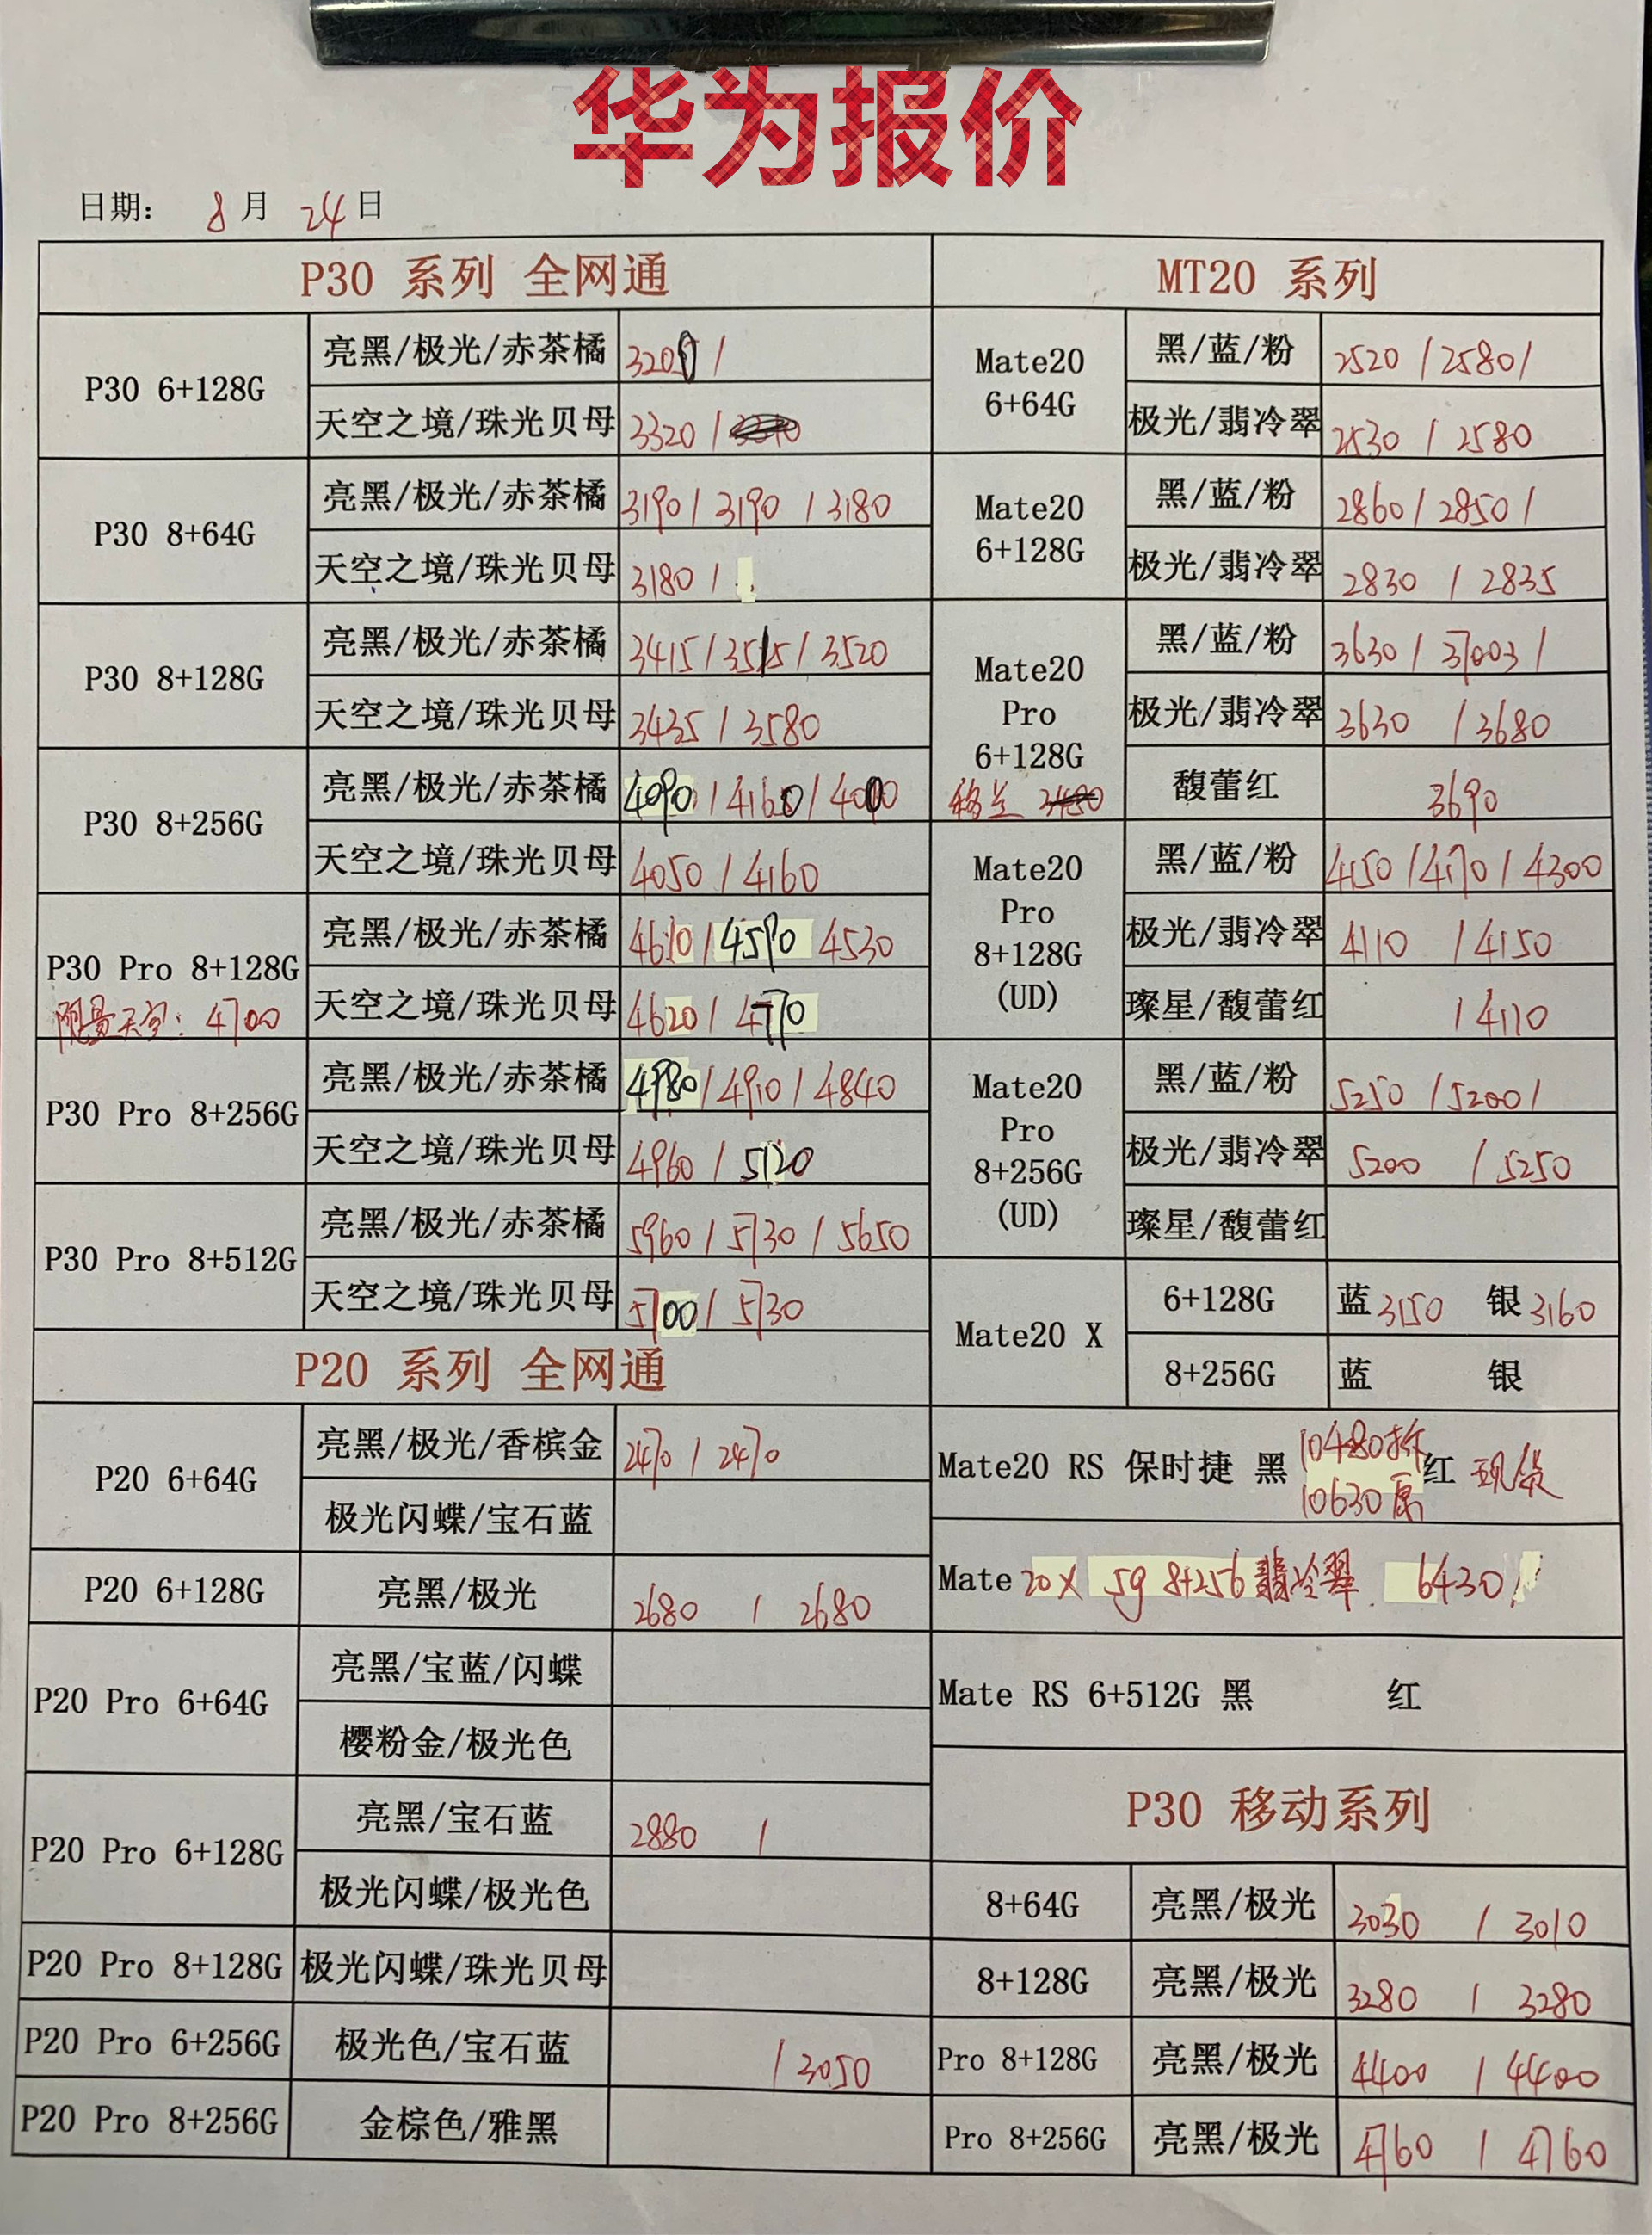 华为报价
日期： 8月 24日
P30 系列 全网通
P30 6+128G
亮黑/极光/赤茶橘 3200 /
天空之境/珠光贝母 3320 /
P30 8+64G
亮黑/极光/赤茶橘 3190 / 3190 / 3180
天空之境/珠光贝母 3180 /
P30 8+128G
亮黑/极光/赤茶橘 3415 / 3515 / 3520
天空之境/珠光贝母 3435 / 3580
P30 8+256G
亮黑/极光/赤茶橘 4090 / 4160 / 4000
天空之境/珠光贝母 4050 / 4160
P30 Pro 8+128G
限量天空：4700
亮黑/极光/赤茶橘 4610 / 4590 4530
天空之境/珠光贝母 4620 / 4770
P30 Pro 8+256G
亮黑/极光/赤茶橘 4980 / 4910 / 4840
天空之境/珠光贝母 4960 / 5120
P30 Pro 8+512G
亮黑/极光/赤茶橘 5960 / 5730 / 5650
天空之境/珠光贝母 5700 / 5730
P20 系列 全网通
P20 6+64G
亮黑/极光/香槟金 2470 / 2470
极光闪蝶/宝石蓝
P20 6+128G
亮黑/极光 2680 / 2680
P20 Pro 6+64G
亮黑/宝蓝/闪蝶
樱粉金/极光色
P20 Pro 6+128G
亮黑/宝石蓝 2880 /
极光闪蝶/极光色
P20 Pro 8+128G 极光闪蝶/珠光贝母
P20 Pro 6+256G 极光色/宝石蓝 / 3050
P20 Pro 8+256G 金棕色/雅黑
MT20 系列
Mate20
6+64G
黑/蓝/粉 2520 / 2580 /
极光/翡冷翠 2530 / 2580
Mate20
6+128G
黑/蓝/粉 2860 / 2850 /
极光/翡冷翠 2830 / 2835
Mate20
Pro
6+128G
黑/蓝/粉 3630 / 37003 /
极光/翡冷翠 3630 / 3680
馥蕾红 3690
Mate20
Pro
8+128G
(UD)
黑/蓝/粉 4150 / 4170 / 4300
极光/翡冷翠 4110 / 4150
璨星/馥蕾红 / 4110
Mate20
Pro
8+256G
(UD)
黑/蓝/粉 5250 / 5200 /
极光/翡冷翠 5200 / 5250
璨星/馥蕾红
Mate20 X
6+128G 蓝 3150 银 3160
8+256G 蓝 银
Mate20 RS 保时捷 黑 10480拆 10630原 红 现货
Mate 20X 5g 8+256 翡冷翠. 6430 /
Mate RS 6+512G 黑 红
P30 移动系列
8+64G 亮黑/极光 3030 / 3010
8+128G 亮黑/极光 3280 / 3280
Pro 8+128G 亮黑/极光 4400 / 4400
Pro 8+256G 亮黑/极光 4760 / 4760